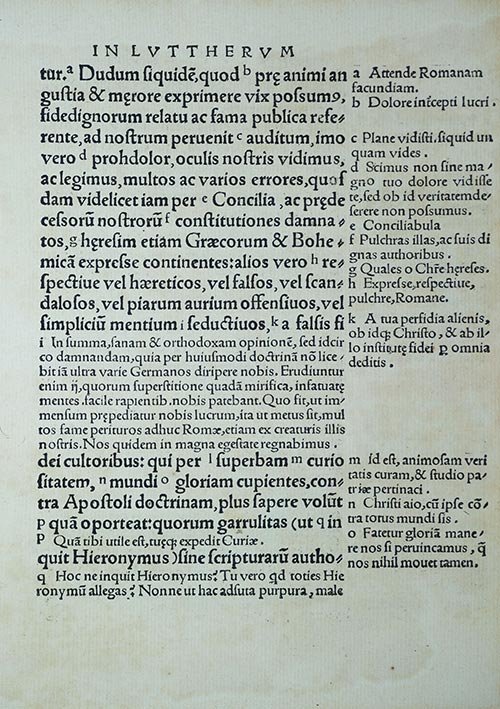 IN LVTTHERVM
tur.ᵃ Dudum siquidē, quod ᵇ pręanimi an
gustia & męrore exprimere vix possumꝰ,
fidedignorum relatu ac fama publica refe⸗
rente, ad nostrum peruenit ᶜ auditum, imo
vero ᵈ prohdolor, oculis nostris vidimus,
ac legimus, multos ac varios errores, quos
dam videlicet iam per ᵉ Concilia, ac pręde
cessorū nostrorū ᶠ constitutiones damna⸗
tos, g hęresim etiam Græcorum & Bohe⸗
micā expresse continentes: alios vero ʰ re⸗
spectiue vel hæreticos, vel falsos, vel scan⸗
dalosos, vel piarum aurium offensiuos, vel
simpliciū mentium i seductiuos, ᵏ a falsis fi
i In summa, sanam & orthodoxam opinionē, sed idcir
co damnandam, quia per huiusmodi doctrinā nō lice⸗
bit iā ultra varie Germanos diripere nobis. Erudiuntur
enim ij, quorum superstitione quadā mirifica, infatuatę
mentes, facile rapientib. nobis patebant. Quo fit, ut im⸗
mensum prępediatur nobis lucrum, ita ut metus sit, mul
tos fame perituros adhuc Romæ, etiam ex creaturis illis
nostris. Nos quidem in magna egestate regnabimus.
dei cultoribus: qui per ˡ superbam ᵐ curio
sitatem, ⁿ mundi ᵒ gloriam cupientes, con⸗
tra Apostoli doctrinam, plus sapere volūt
p quā oporteat: quorum garrulitas (ut q in
P Quā tibi utile est, tuęq; expedit Curiæ.
quit Hieronymus) sine scripturarū autho⸗
q Hoc ne inquit Hieronymus? Tu vero qd toties Hie
ronymū allegas? Non ne ut hac adsuta purpura, male
a Attende Romanam
facundiam.
b Dolore intercepti lucri.
c Plane vidisti, siquid un
quam vides.
d Scimus non sine ma⸗
gno tuo dolore vidisse
te, sed ob id veritatem de⸗
serere non possumus.
e Conciliabula
f Pulchras illas, ac suis di
gnas authoribus.
g Quales o Chre hereses.
h Expresse, respectiue,
pulchre, Romane.
k A tua perfidia alienis,
ob idq; Christo, & ab il⸗
lo institutę fidei ꝑ omnia
deditis.
m id est, animosam veri
tatis curam, & studio pa⸗
triæ pertinaci.
n Christi aio, cū ipse cō⸗
tra totus mundi sis.
o Fatetur gloriā mane⸗
re nos si peruincamus, q̄
nos nihil mouet tamen.